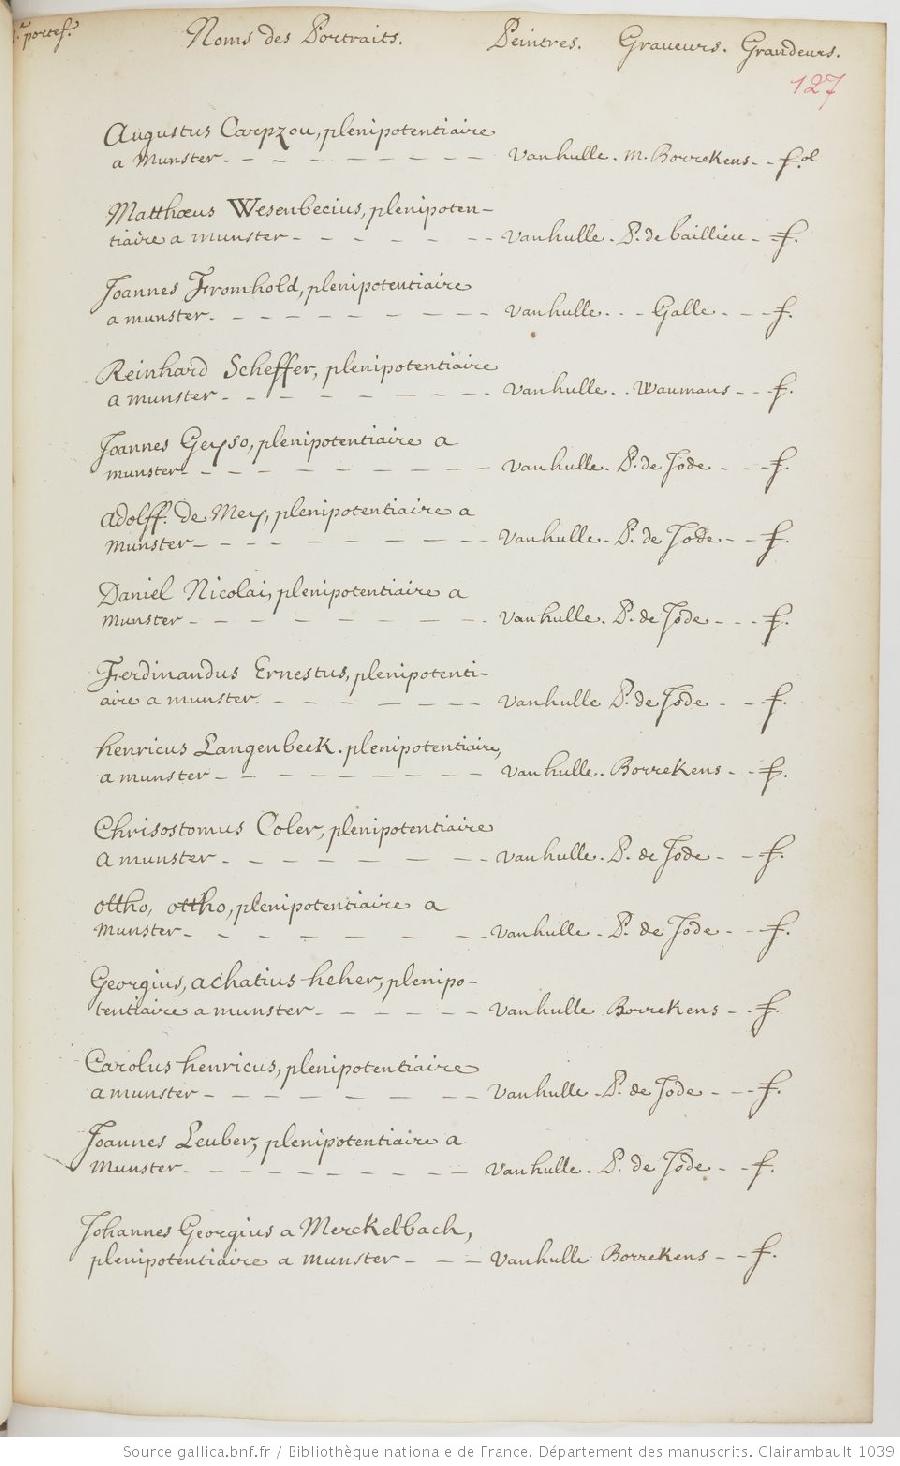 portef.^e Noms des Portraits. Peintres. Graveurs. Grandeurs.
127
Augustus Carpzou, plenipotentiaire
a Munster - - - - - - - - - Vanhulle. M. Borrekens - - f.^ol
Matthœus Wesenbecius, plenipoten-
tiaire a munster - - - - - - - Vanhulle. P. de baillieu - f.
Joannes Fromhold, plenipotentiaire
a munster. - - - - - - - - - Vanhulle. - - Galle. - - - f.
Reinhard Scheffer, plenipotentiaire
a munster - - - - - - - - Vanhulle. . Waumans - - f.
Joannes Geyso, plenipotentiaire a
munster - - - - - - - - - Vanhulle. P. de Jode. - - f.
adolff. de Mey, plenipotentiaire a
munster - - - - - - - - - Vanhulle. P. de Jode. - - f.
Daniel Nicolai, plenipotentiaire a
munster - - - - - - - - - Vanhulle. P. de Jode - - - f.
Ferdinandus Ernestus, plenipotenti-
aire a munster - - - - - - Vanhulle P. de Jode - - f.
henricus Langenbeck. plenipotentiaire,
a munster - - - - - - - - Vanhulle. Borrekens - - f.
Chrisostomus Coler, plenipotentiaire
a munster - - - - - - - - Vanhulle. P. de Jode - - f.
ottho, ottho, plenipotentiaire a
Munster - - - - - - - - - Vanhulle - P. de Jode - - f.
Georgius, achatius heher, plenipo-
tentiaire a munster - - - - - - Vanhulle Borrekens - - f.
Carolus henricus, plenipotentiaire
a munster - - - - - - - - Vanhulle - P. de Jode - - - f.
Joannes Leuber, plenipotentiaire a
Munster - - - - - - - - - Vanhulle. P. de Jode - - f.
Johannes Georgius a Merckelbach,
plenipotentiaire a munster - - - Vanhulle Borrekens - - f.
Source gallica.bnf.fr / Bibliothèque nationale de France. Département des manuscrits. Clairambault 1039